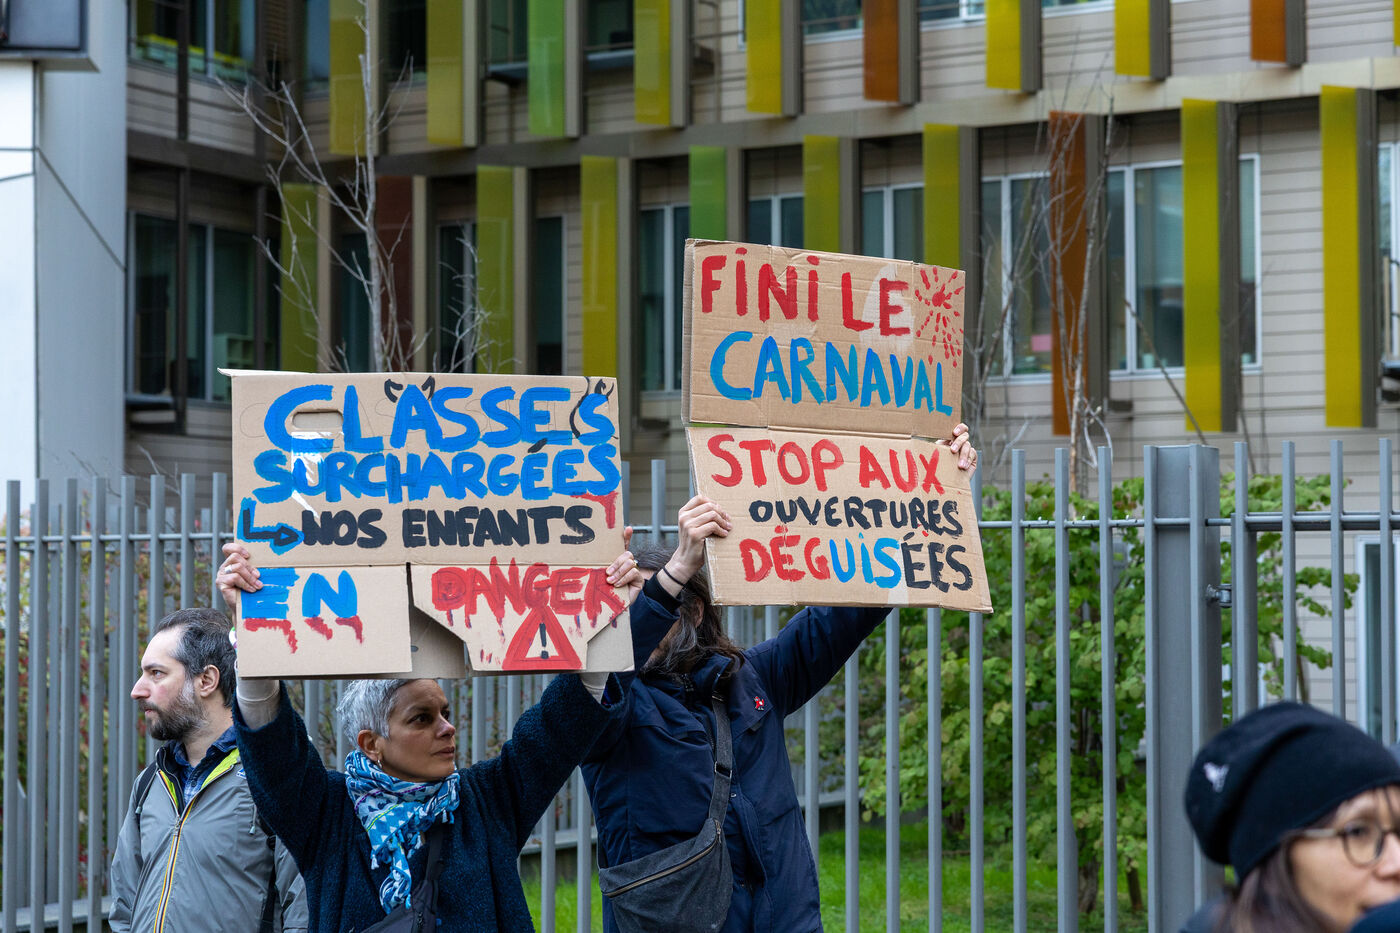 CLASSES
SURCHARGÉES
NOS ENFANTS
EN DANGER
FINI LE
CARNAVAL
STOP AUX
OUVERTURES
DÉGUISÉES